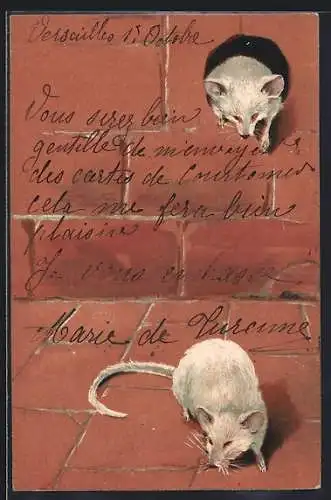 Versailles 1r Octobre
Vous serez bien
gentille de m'envoyer
des cartes de
cela me fera bien
plaisir
Je vous embrasse
Marie de Turenne